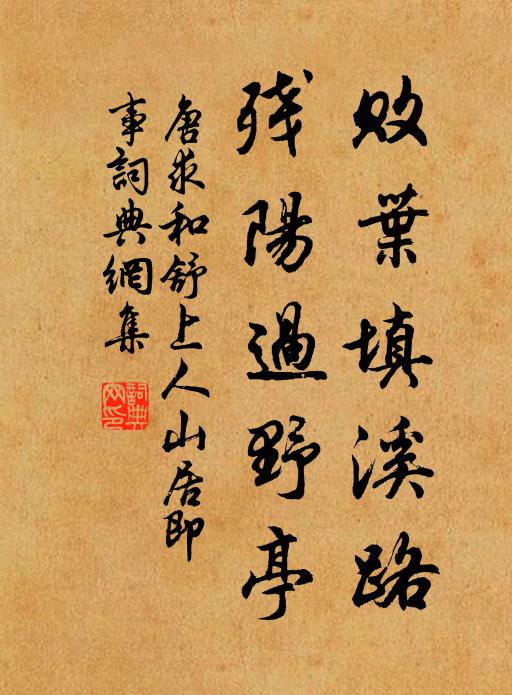 敗葉填溪路
殘陽過野亭
唐求和舒上人山居即
事詞典網集
詞典
网印